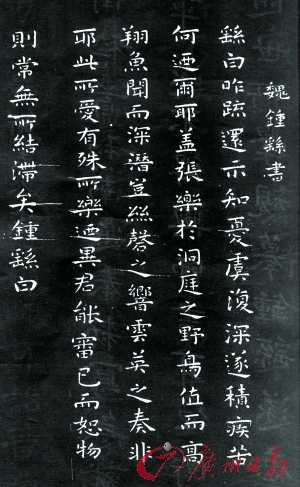 魏鍾繇書
繇白昨疏還示知憂虞復深遂積疾苦
何迺爾耶蓋張樂於洞庭之野鳥值而高
翔魚聞而深潛豈絲磬之響雲英之奏非
耶此所愛有殊所樂迺異君能審已而恕物
則常無所結滯矣鍾繇白
廣州日报